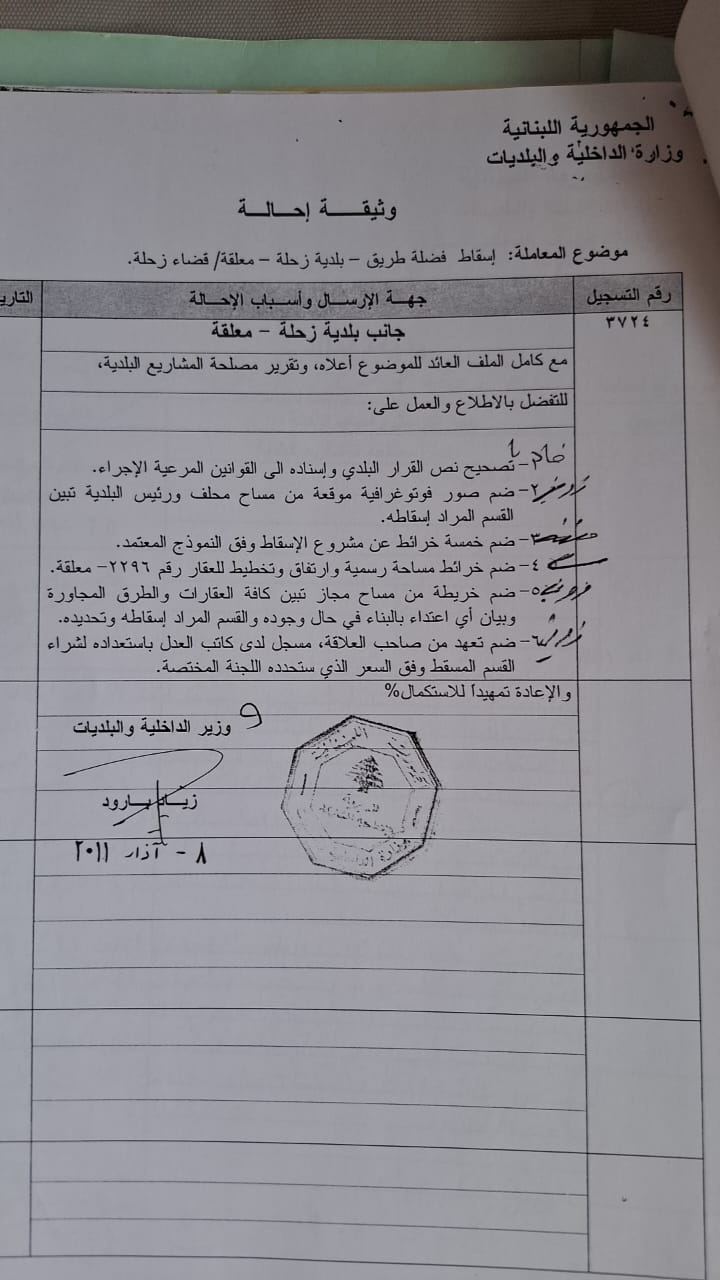 الجمهورية اللبنانية
وزارة الداخلية والبلديات
وثيقة إحالة
موضوع المعاملة: إسقاط فضلة طريق – بلدية زحلة – معلقة/ قضاء زحلة.
رقم التسجيل
جهة الإرسال وأسباب الإحالة
التاري
٣٧٢٤
جانب بلدية زحلة – معلقة
مع كامل الملف العائد للموضوع أعلاه، وتقرير مصلحة المشاريع البلدية،
للتفضل بالاطلاع والعمل على:
١– تصحيح نص القرار البلدي وإسناده الى القوانين المرعية الإجراء.
٢– ضم صور فوتوغرافية موقعة من مساح محلف ورئيس البلدية تبين
القسم المراد إسقاطه.
٣– ضم خمسة خرائط عن مشروع الإسقاط وفق النموذج المعتمد.
٤– ضم خرائط مساحة رسمية وارتفاق وتخطيط للعقار رقم ٢٢٩٦– معلقة.
٥– ضم خريطة من مساح مجاز تبين كافة العقارات والطرق المجاورة
وبيان أي اعتداء بالبناء في حال وجوده والقسم المراد إسقاطه وتحديده.
٦– ضم تعهد من صاحب العلاقة، مسجل لدى كاتب العدل باستعداده لشراء
القسم المسقط وفق السعر الذي ستحدده اللجنة المختصة.
والإعادة تمهيداً للاستكمال%
وزير الداخلية والبلديات
زياد بارود
٨ - آذار ٢٠١١